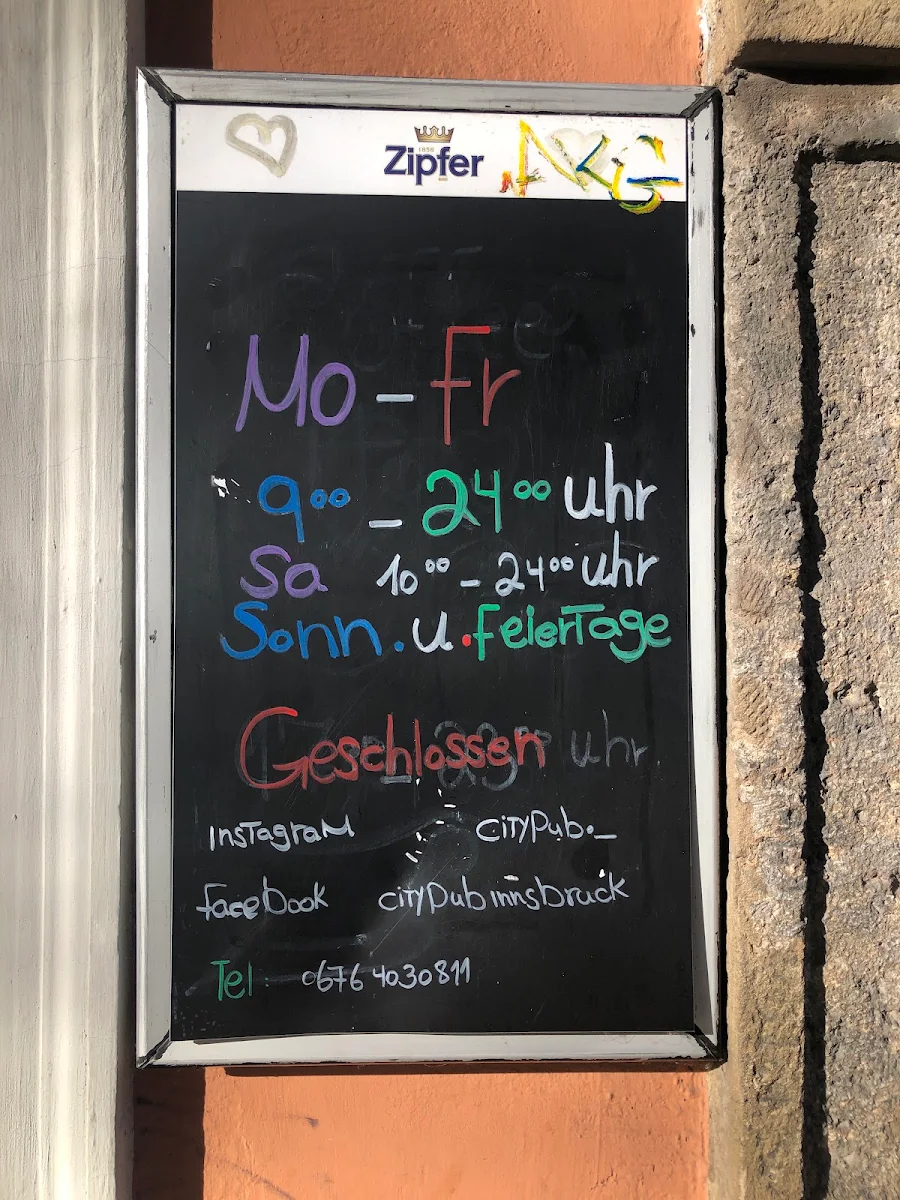 1858
Zipfer
Mo - Fr
9⁰⁰ - 24⁰⁰ uhr
Sa 10⁰⁰ - 24⁰⁰ uhr
Sonn. u. feierTage
Geschlossen uhr
InsTagraM ciTYPub._
facebook ciTYPubinnsbruck
Tel 0676 4030811